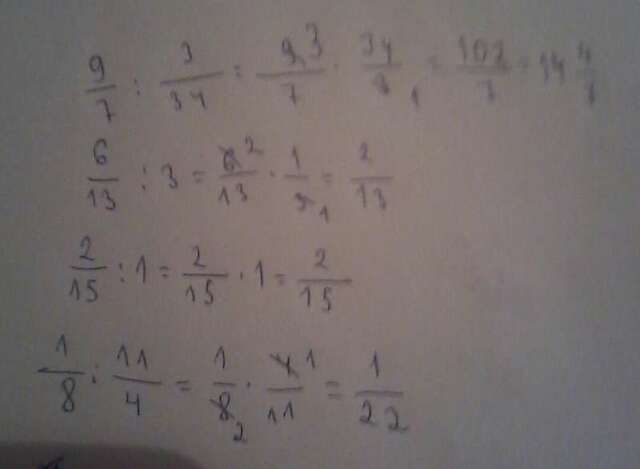 9/7 : 3/34 = 9 3/7 · 34/3 1 = 102/7 = 14 4/7
6/13 : 3 = 6 2/13 · 1/3 1 = 2/13
2/15 : 1 = 2/15 · 1 = 2/15
1/8 : 11/4 = 1/8 2 · 4 1/11 = 1/22